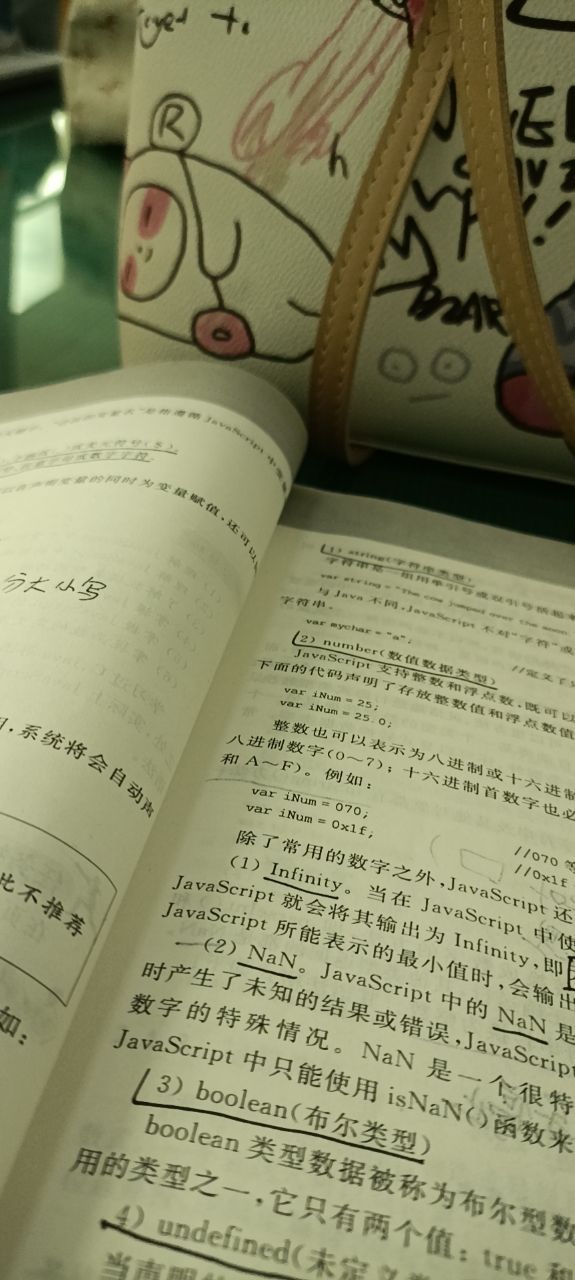 R
h
分大小写
,系统将会自动声
比不推荐
如:
以在声明变量的同时为变量赋值,还可以
1) string(字符串类型)
字符串是一组用单引号或双引号括起来
var string = "The cow jumped over the moon
与 Java 不同,JavaScript 不对“字符”或
字符串。
var mychar = "a";
//定义了
2) number(数值数据类型)
JavaScript 支持整数和浮点数,既可以
下面的代码声明了存放整数值和浮点数值
var iNum = 25;
var iNum = 25.0;
整数也可以表示为八进制或十六进制
八进制数字(0~7);十六进制首数字也必
和 A~F)。例如:
var iNum = 070;
//070 等
var iNum = 0x1f;
//0x1f
除了常用的数字之外,JavaScript 还
(1) Infinity。当在 JavaScript 中使
JavaScript 就会将其输出为 Infinity,即
JavaScript 所能表示的最小值时,会输出
(2) NaN。JavaScript 中的 NaN 是
时产生了未知的结果或错误,JavaScript
数字的特殊情况。NaN 是一个很特
JavaScript 中只能使用 isNaN()函数来
3) boolean(布尔类型)
boolean 类型数据被称为布尔型数
用的类型之一,它只有两个值:true 和
4) undefined(未定义
当声明的